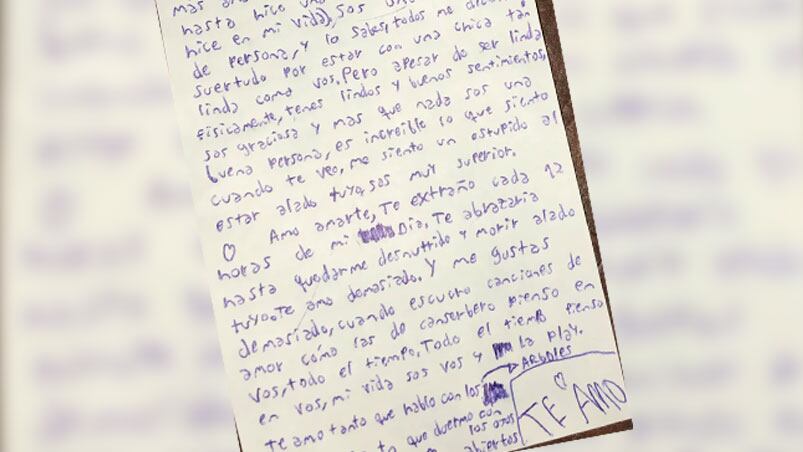 mas
hasta hice un
hice en mi vida), sos un
de persona, y lo sabes, todos me dicen
suertudo por estar con una chica tan
linda como vos. Pero apesar de ser linda
fisicamente, tenes lindos y buenos sentimientos,
sos graciosa y mas que nada sos una
buena persona, es increible lo que siento
cuando te veo, me siento un estupido al
estar alado tuyo, sos muy superior.
♡ Amo amarte, Te extraño cada 12
horas de mi Dia. Te abrazaria
hasta quedarme desnutrido y morir alado
tuyo. Te amo demasiado. Y me gustas
demasiado, cuando escucho canciones de
amor cómo las de canserbero pienso en
vos, todo el tiempo. Todo el tiempo pienso
en vos, mi vida sos vos y la play.
te amo tanto que hablo con los ARBOLES
to que duermo con
los ojos
abiertos
TE AMO